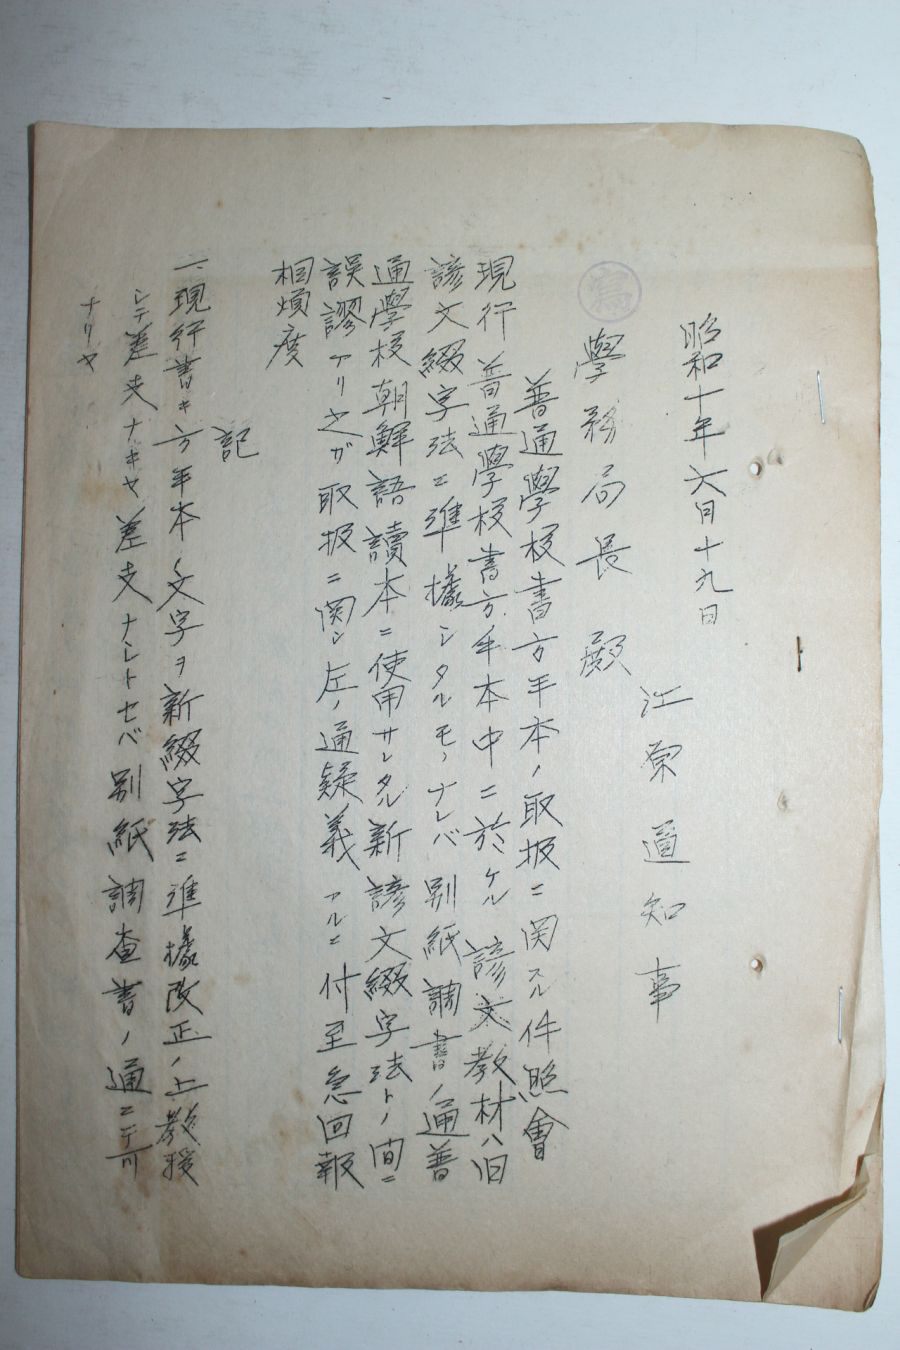 昭和十年六月十九日
江原道知事
寫
學務局長殿
普通學校書方手本ノ取扱ニ関スル件照會
現行普通學校書方手本中ニ於ケル諺文教材ハ旧
諺文綴字法ニ準據シタルモノナレバ別紙調書ノ通普
通學校朝鮮語讀本ニ使用サレタル新諺文綴字法トノ間ニ
誤謬アリ之ガ取扱ニ関シ左ノ通疑義アルニ付至急回報
相煩度
記
一、現行書キ方手本ノ文字ヲ新綴字法ニ準據改正ノ上教授
シテ差支ナキヤ差支ナシトセバ別紙調査書ノ通ニテ可
ナリヤ